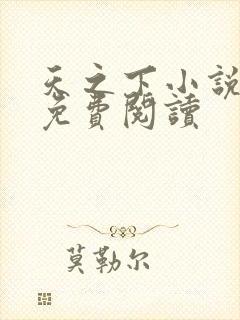 天之下小說
免費閱讀
莫勒尔